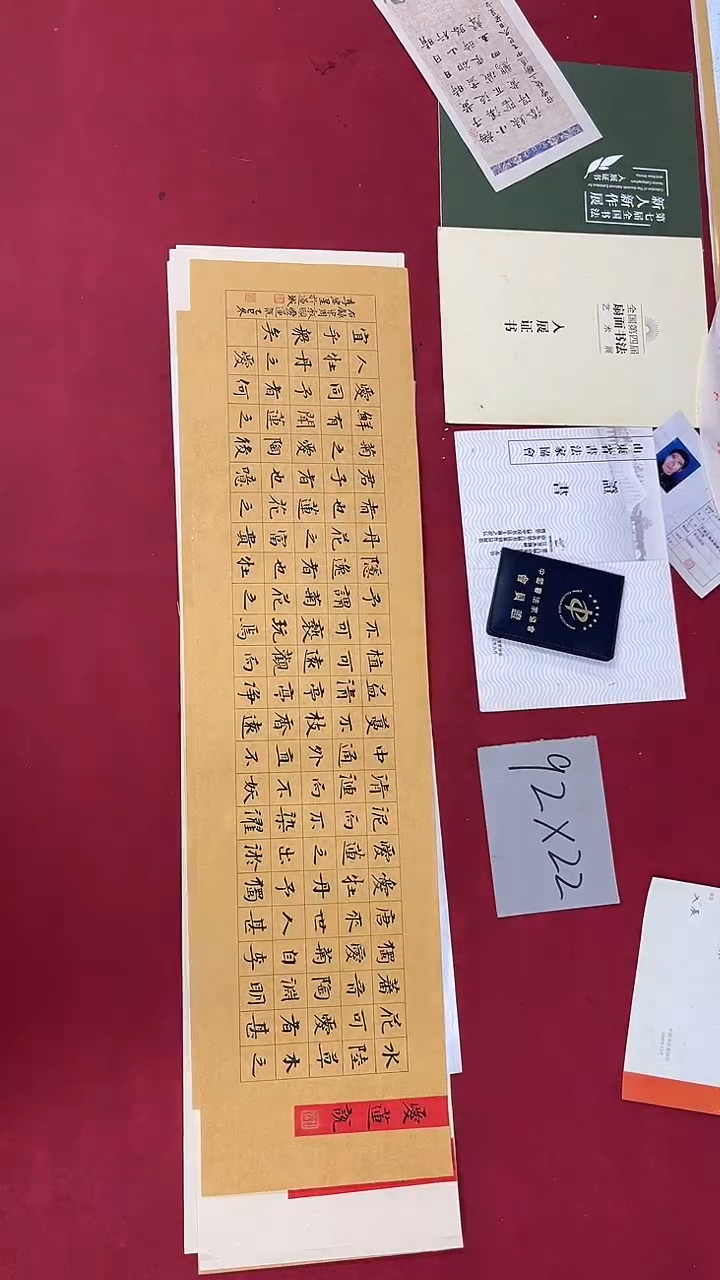 愛蓮說
水陸草木之
花可愛者甚
蕃晉陶淵明
獨愛菊自李
唐來世人甚
愛牡丹予獨
愛蓮之出淤
泥而不染濯
清漣而不妖
中通外直不
蔓不枝香遠
益清亭亭净
植可遠觀而
不可褻玩焉
予謂菊花之
隱逸者也牡
丹花之富貴
者也蓮花之
君子者也噫
菊之愛陶後
鮮有聞蓮之
愛同予者何
人牡丹之愛
宜乎衆矣
第七届全国书法
新人新作展
入展证书
全国第四届
扇面书法
艺术展
入展证书
山東省書法家協會
證書
會員證
92×22
入展